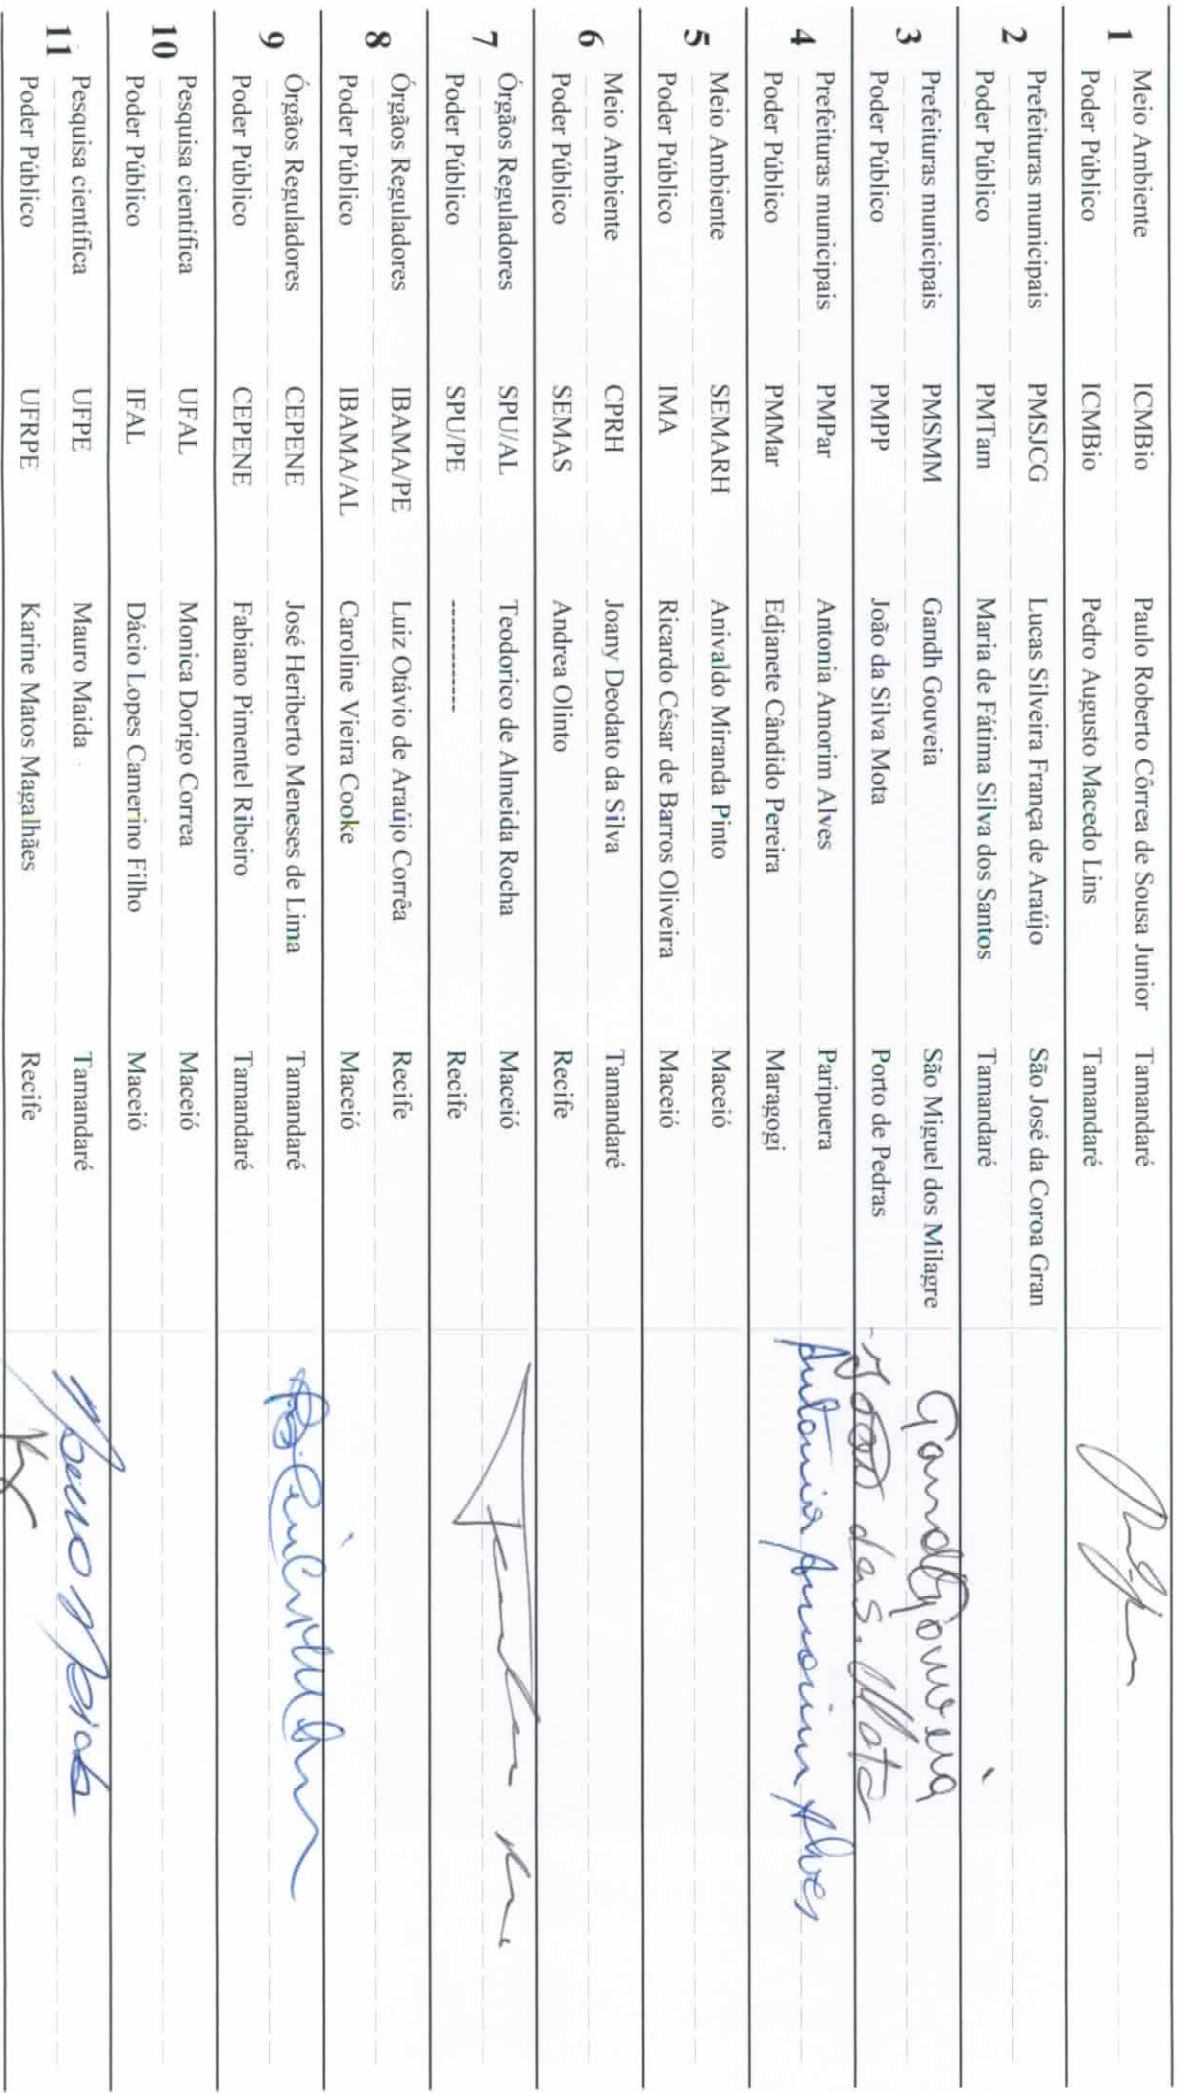 1 Meio Ambiente ICMBio Paulo Roberto Côrrea de Sousa Junior Tamandaré
Poder Público ICMBio Pedro Augusto Macedo Lins Tamandaré
2 Prefeituras municipais PMSJCG Lucas Silveira França de Araújo São José da Coroa Gran
Poder Público PMTam Maria de Fátima Silva dos Santos Tamandaré
3 Prefeituras municipais PMSMM Gandh Gouveia São Miguel dos Milagre Gandh Gouveia
Poder Público PMPP João da Silva Mota Porto de Pedras João da S. Mota
4 Prefeituras municipais PMPar Antonia Amorim Alves Paripuera Antonia Amorim Alves
Poder Público PMMar Edjanete Cândido Pereira Maragogi
5 Meio Ambiente SEMARH Anivaldo Miranda Pinto Maceió
Poder Público IMA Ricardo César de Barros Oliveira Maceió
6 Meio Ambiente CPRH Joany Deodato da Silva Tamandaré
Poder Público SEMAS Andrea Olinto Recife
7 Órgãos Reguladores SPU/AL Teodorico de Almeida Rocha Maceió
Poder Público SPU/PE ------------ Recife
8 Órgãos Reguladores IBAMA/PE Luiz Otávio de Araújo Corrêa Recife
Poder Público IBAMA/AL Caroline Vieira Cooke Maceió
9 Órgãos Reguladores CEPENE José Heriberto Meneses de Lima Tamandaré
Poder Público CEPENE Fabiano Pimentel Ribeiro Tamandaré
10 Pesquisa científica UFAL Monica Dorigo Correa Maceió
Poder Público IFAL Dácio Lopes Camerino Filho Maceió
11 Pesquisa científica UFPE Mauro Maida Tamandaré Mauro Maida
Poder Público UFRPE Karine Matos Magalhães Recife